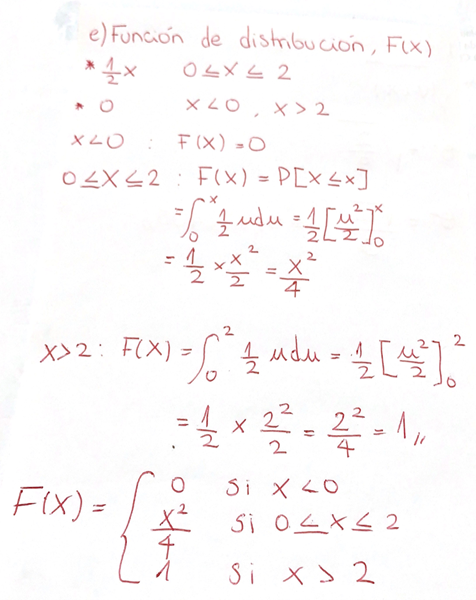 e) Función de distribución, F(x)
* 1/2 x 0 ≤ x ≤ 2
* 0 x < 0 , x > 2
x < 0 : F(x) = 0
0 ≤ x ≤ 2 : F(x) = P[x ≤ x]
= ∫₀ˣ 1/2 u du = 1/2 [u²/2]₀ˣ
= 1/2 × x²/2 = x²/4
x > 2 : F(x) = ∫₀² 1/2 u du = 1/2 [u²/2]₀²
= 1/2 × 2²/2 = 2²/4 = 1,,
F(x) = { 0 si x < 0
x²/4 si 0 ≤ x ≤ 2
1 si x > 2